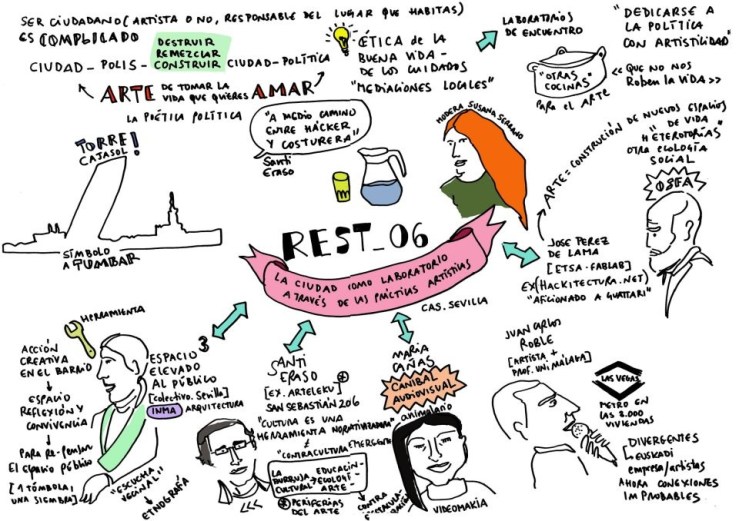 SER CIUDADANO (ARTISTA O NO, RESPONSABLE DEL LUGAR QUE HABITAS)
ES COMPLICADO
DESTRUIR
REMEZCLAR
CIUDAD - POLIS - CONSTRUIR CIUDAD-POLÍTICA
ARTE DE TOMAR LA VIDA QUE QUIERES AMAR
LA POÉTICA POLÍTICA
ÉTICA de la
BUENA VIDA -
DE LOS CUIDADOS
"MEDIACIONES LOCALES"
LABORATORIOS
DE ENCUENTRO
"DEDICARSE A
LA POLÍTICA
CON ARTISTILIDAD"
"OTRAS
COCINAS"
para el ARTE
<< QUE NO NOS
Roben la VIDA >>
TORRE!
CAJASOL
SÍMBOLO
A TUMBAR
"A MEDIO CAMINO
ENTRE HACKER
Y COSTURERA"
Santi
Eraso
MODERA SUSANA SERRANO
ARTE = CONSTRUCCIÓN DE NUEVOS ESPACIOS
DE VIDA
"HETEROTOPÍAS"
OTRA ECOLOGÍA
SOCIAL
OSFA
REST_06
LA CIUDAD COMO LABORATORIO
A TRAVÉS DE LAS PRÁCTICAS ARTÍSTICAS
CAS. SEVILLA
JOSE PEREZ
DE LAMA
[ETSA-FABLAB]
EX (HACKITECTURA.NET)
"AFICIONADO A GUATTARI"
HERRAMIENTA
ACCIÓN
CREATIVA
EN EL BARRIO
ESPACIO
REFLEXIÓN Y
CONVIVENCIA
PARA RE-PENSAR
El espacio público
[1 TÓMBOLA,
UNA SIEMBRA]
3
ESPACIO
ELEVADO
AL PÚBLICO
[colectivo. Sevilla]
INMA ARQUITECTURA
"ESCUCHA
VECINAL"
ETNOGRAFÍA
SANTI
ERASO
[EX. ARTELEKU]
SAN SEBASTIÁN 2016
"CULTURA ES UNA
HERRAMIENTA NORMATIVIZADORA"
≠
"CONTRACULTURA EMERGENTE"
LA
BURBUJA
CULTURAL
EDUCACIÓN-
ECOLOGÍ-
ARTE-
* PERIFERIAS
DEL ARTE
MARIA
CAÑAS
CANIBAL
AUDIOVISUAL
animalario
CONTRA
VIDEOMAKIA
JUAN CARLOS
ROBLE
[ARTISTA +
PROF. UNI MÁLAGA]
LAS VEGAS
METRO EN
LAS 3.000
VIVIENDAS
DIVERGENTES
EUSKADI
empresa/artistas
AHORA CONEXIONES
IMPROBABLES